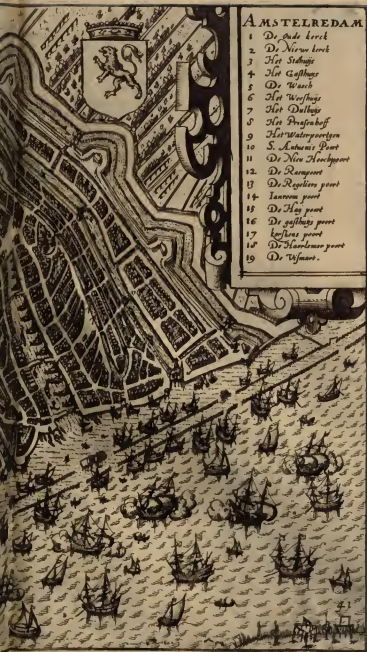 AMSTELREDAM
1 De oude kerck
2 De Nieuwe kerck
3 Het Stahuijs
4 Het Gasthuys
5 De Waech
6 Het Weeshuijs
7 Het Dulhuijs
8 Het Prinsenhoff
9 Het Waterpoertgen
10 S. Antonis Poert
11 De Nieu Hoochpoert
12 De Raempoert
13 De Reguliers poert
14 Janroon poert
15 De Hey poert
16 De gasthuijs poert
17 poert
18 De Haerlemer poert
19 De Vismart.
41